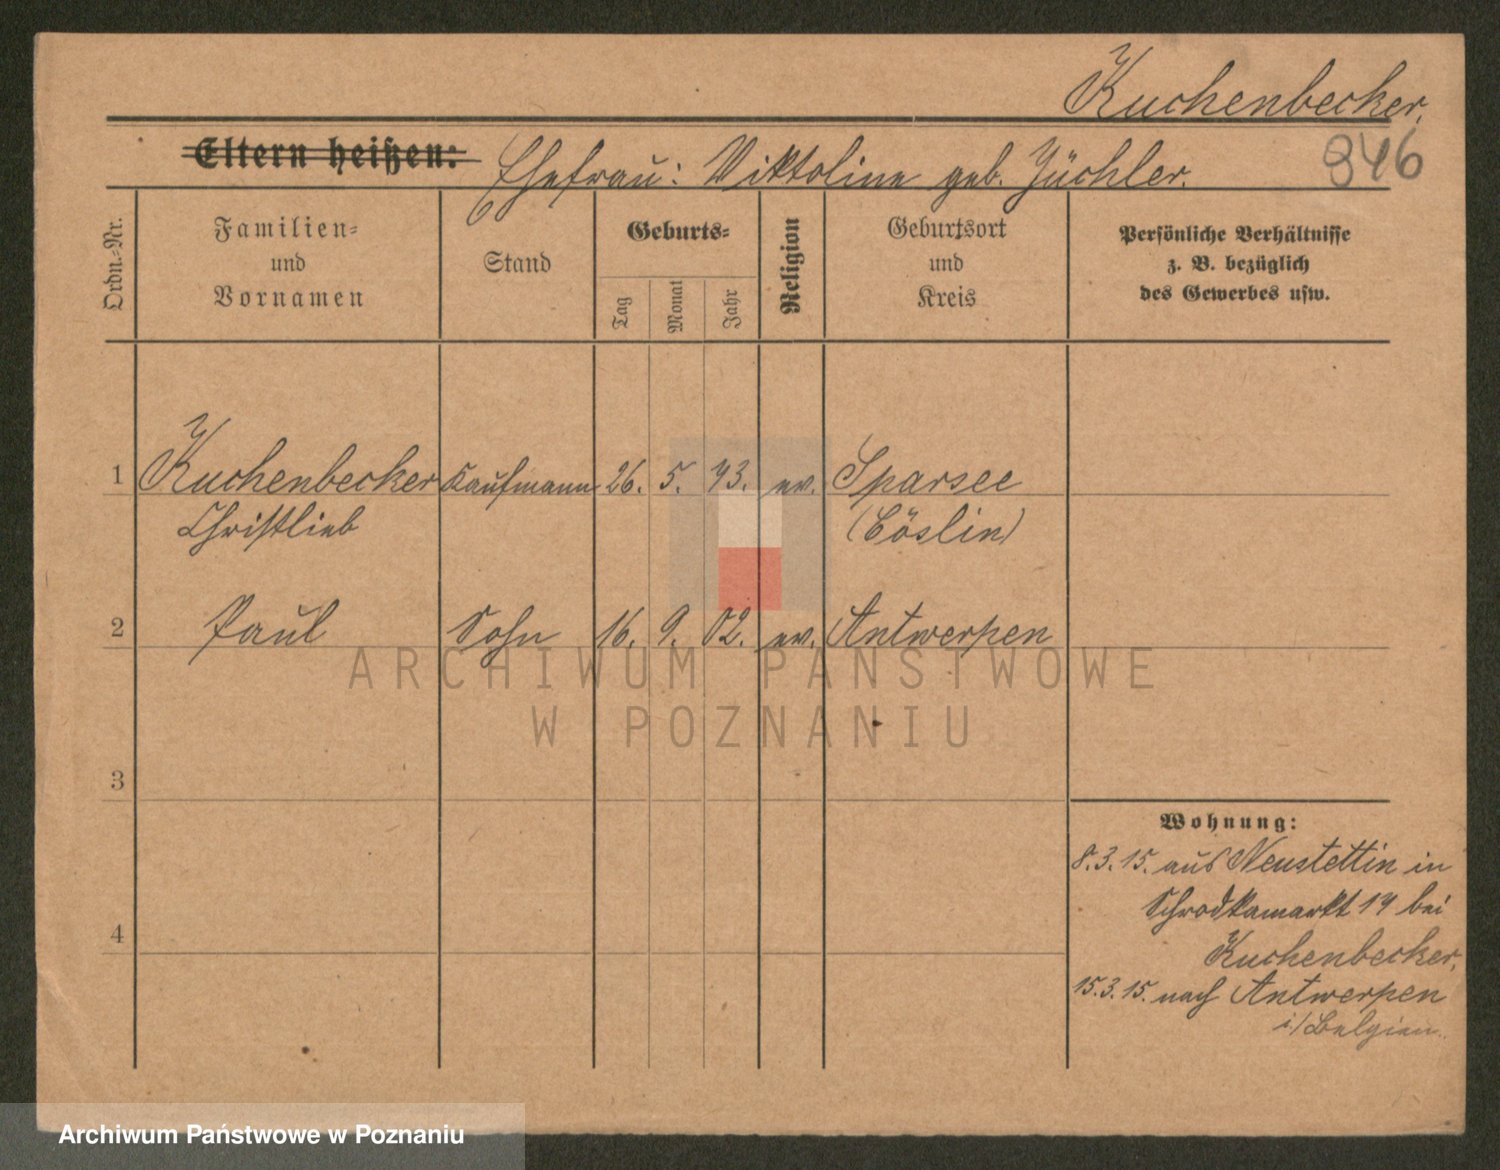 Kuchenbecker.
346
Eltern heißen: Ehefrau: Viktoline geb. Jüchler.
Ordn.-Nr.
Familien-
und
Vornamen
Stand
Geburts-
Tag
Monat
Jahr
Religion
Geburtsort
und
Kreis
Persönliche Verhältnisse
z. B. bezüglich
des Gewerbes usw.
1 Kuchenbecker Kaufmann 26. 5. 73. ev. Sparsee
Christlieb (Cöslin)
2 Paul Sohn 16. 9. 02. ev. Antwerpen
ARCHIWUM PAŃSTWOWE
W POZNANIU
3
4
Wohnung:
8.3.15. aus Neustettin in
Schrodkamarkt 17 bei
Kuchenbecker,
15.3.15. nach Antwerpen
i/Belgien.
Archiwum Państwowe w Poznaniu